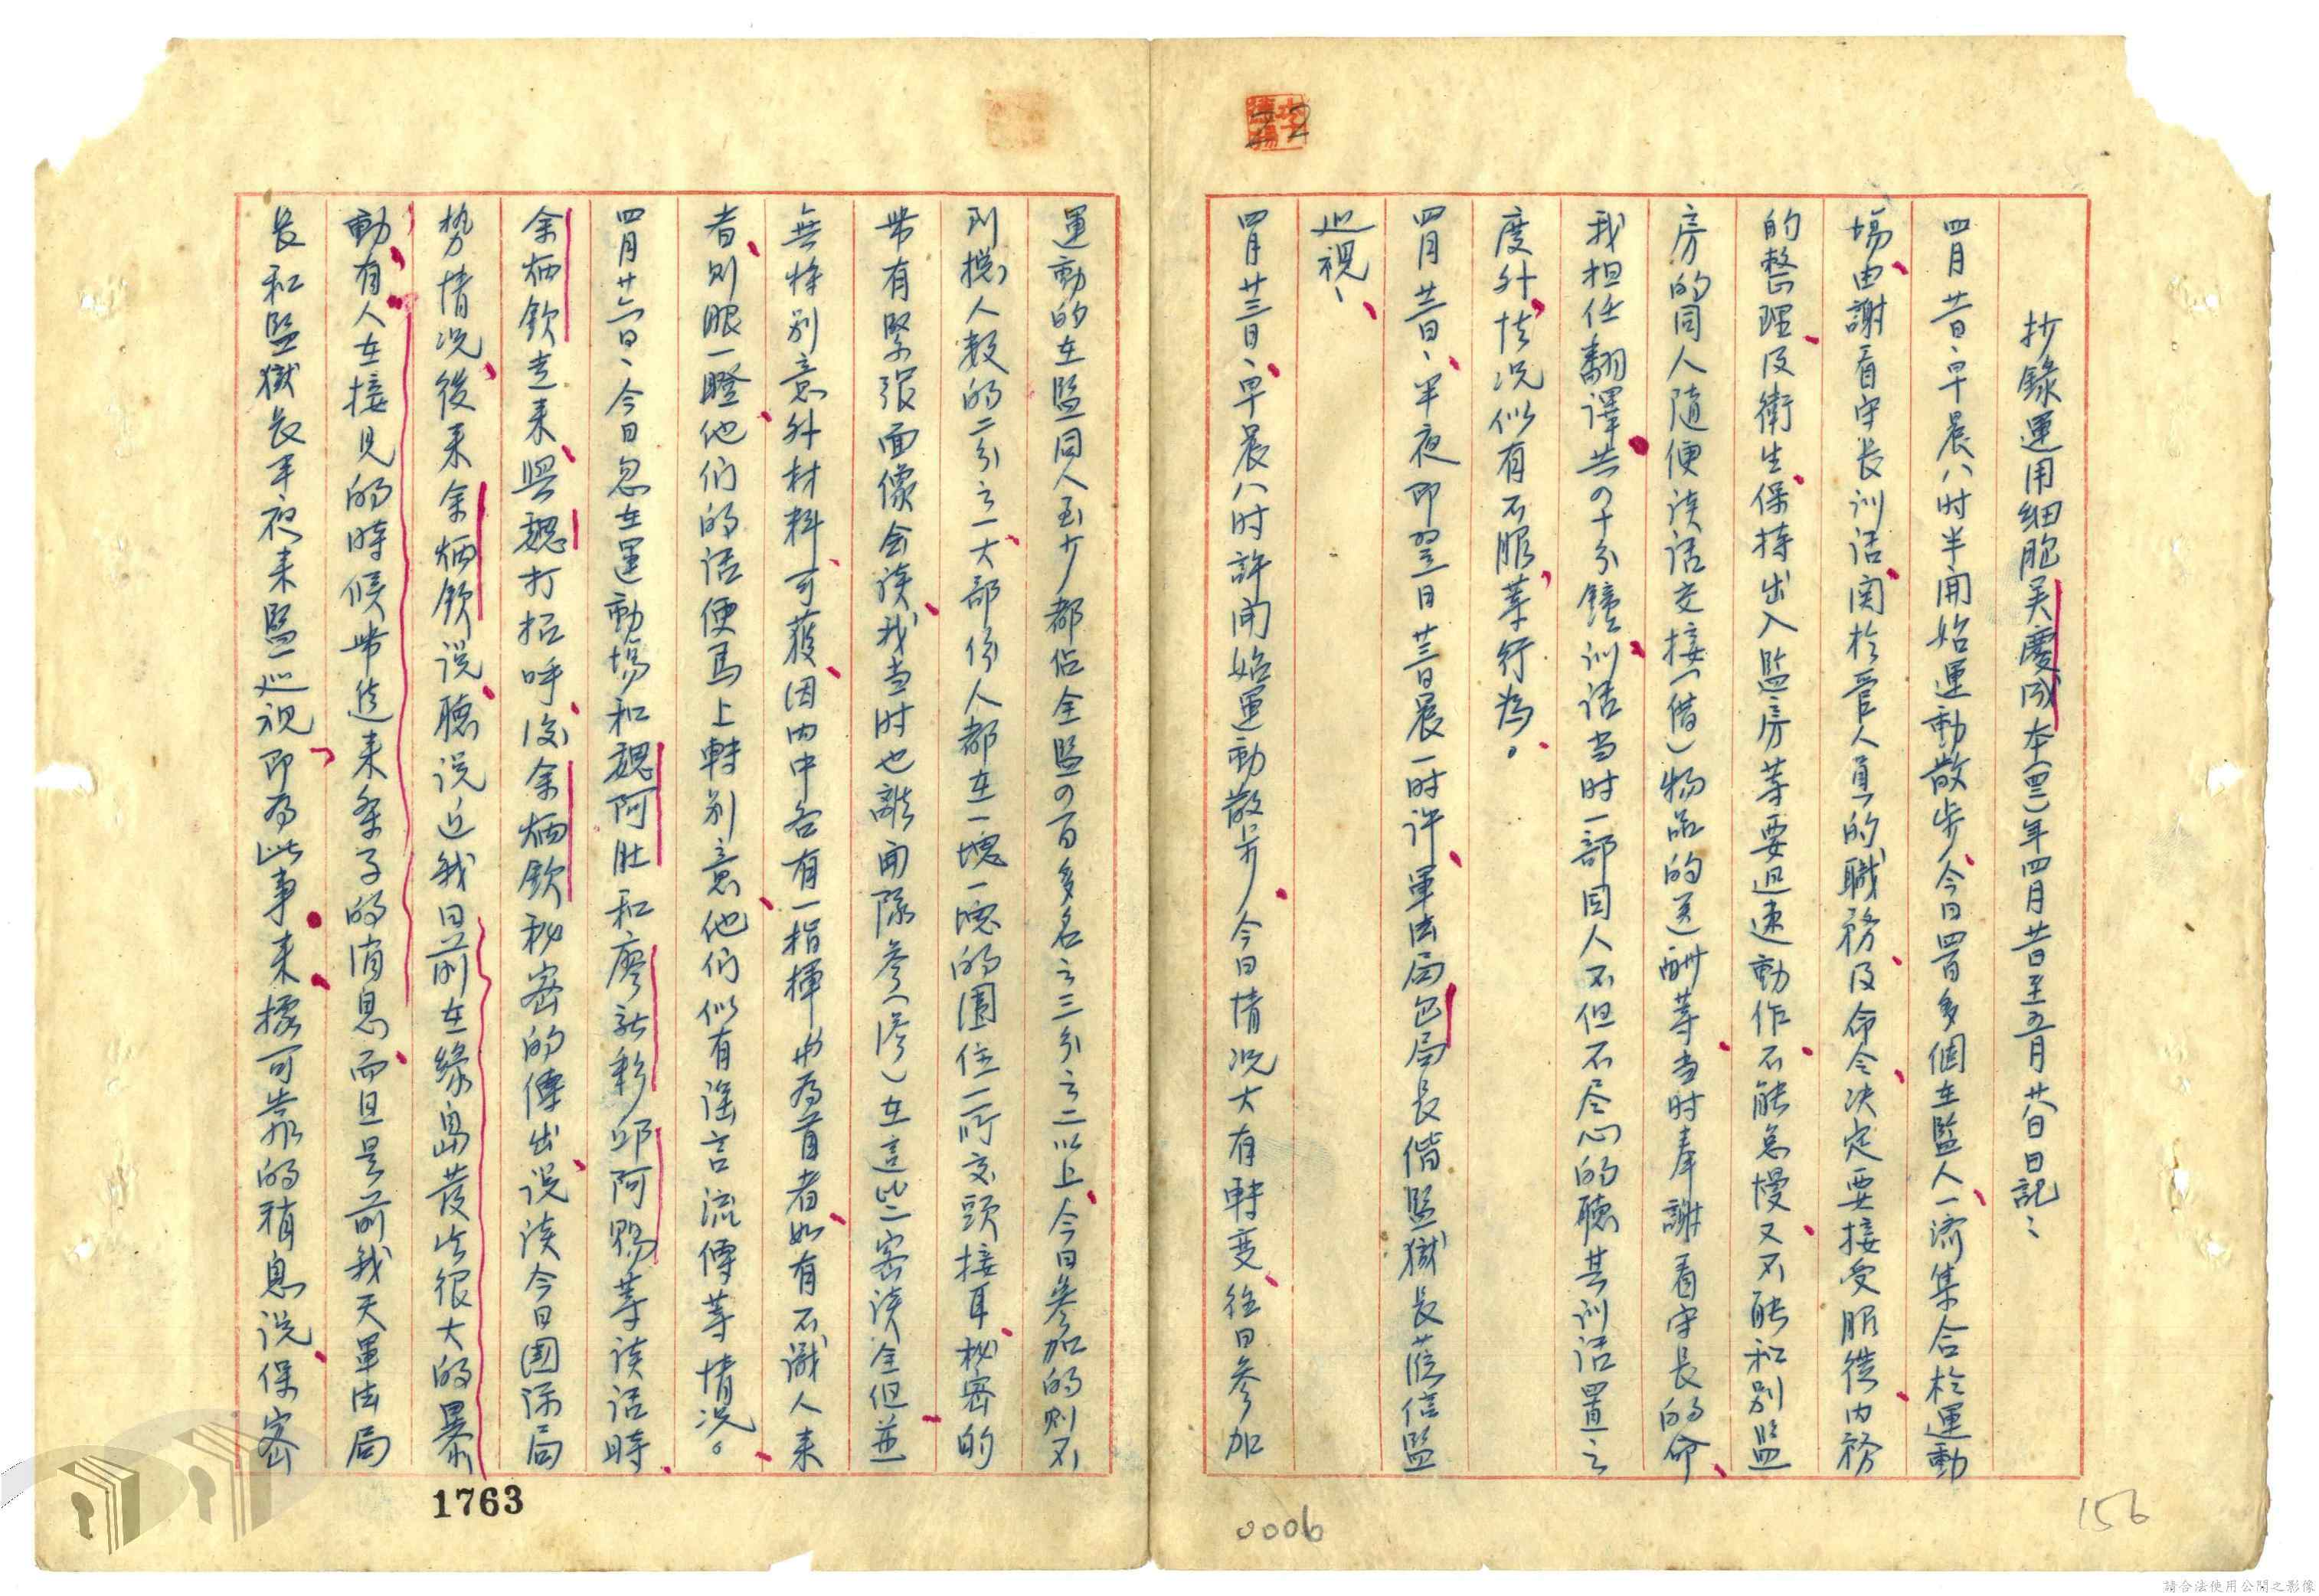 抄錄運用細胞吳慶成本(四三)年四月廿日至五月廿八日日記：
四月廿日、早晨八时半開始運動散步、今日四百多個在監人、一济集合於運動
場、由謝看守长训话、関於管人員的職務、及命令决定要接受服從、内務
的整理、及衛生、保持出入監房等要迅速動作、不能怠慢、又不能和別監
房的同人隨便谈话交接(借)物品的送酬等、当时奉謝看守長的命、
我担任翻譯、共四十分鐘、训话当时一部同人不但不尽心的聽其训话置之
度外、情况似有不服、等行為。
四月廿二日、半夜即翌日廿三日晨一时许、軍法局包局長偕監獄長蒞信監
巡視、
四月廿三日、早晨八时許開始運動散步、今日情况大有轉变、往日參加
運動的在監同人至少都佔全監四百多名之三分之二以上、今日參加的则不
到總人数的二分之一、大部份人都在一塊一塊的圍住一所交頭接耳、秘密的
帶有緊張面像会谈、我当时也離開隊參(滲)在這些密谈全但並
無特別意外材料、可獲、因内中各有一指揮、為首者、如有不識人来
者、则眼一瞪、他們的话便馬上轉別意、他們似有謠言流傳等情况。
四月廿六日、今日忽在運動場和魏阿肚和廖新彩邱阿賜等谈话時、
余炳欽走来、與魏打招呼、後余炳欽秘密的傳出、说谈今日国際局
势情况、後来余炳欽说、聽说近我日前在綠島發出很大的暴
動、有人在接見的時候帶進来条子的消息、而且是前我天軍法局
長和監獄長半夜来監巡視、即為此事来、據可靠的稍息说、保密
1763
0006
156
請合法使用公開之影像